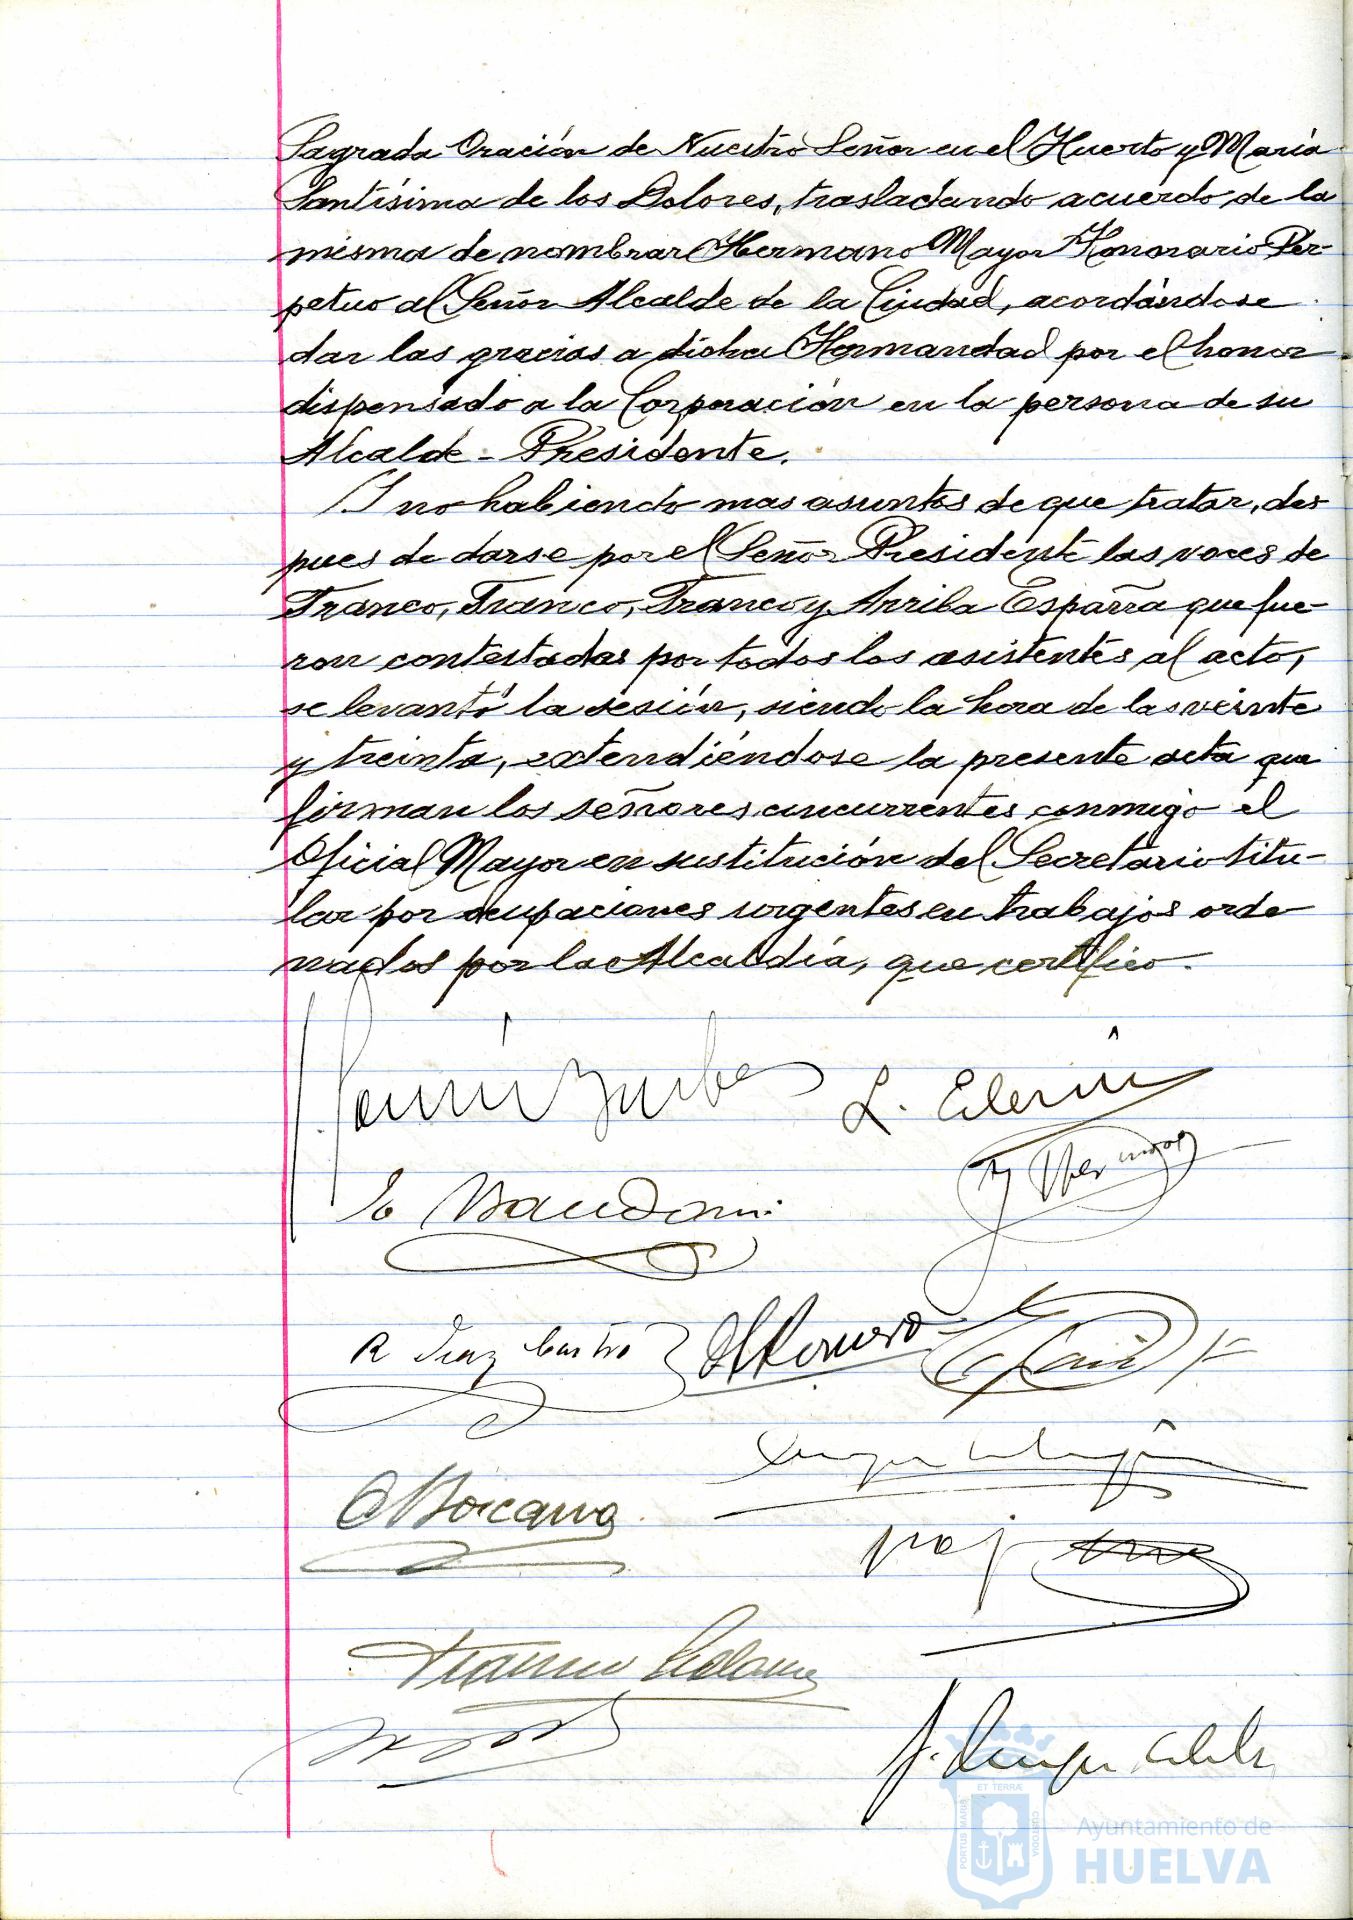 Sagrada Oración de Nuestro Señor en el Huerto y María
Santísima de los Dolores, trasladando acuerdo de la
misma de nombrar Hermano Mayor Honorario Per-
petuo al Señor Alcalde de la Ciudad, acordándose
dar las gracias a dicha Hermandad por el honor
dispensado a la Corporación en la persona de su
Alcalde - Presidente.
Y no habiendo mas asuntos de que tratar, des
pues de darse por el Señor Presidente las voces de
Franco, Franco, Franco y Arriba España que fue-
ron contestadas por todos los asistentes al acto,
se levantó la sesión, siendo la hora de las veinte
y treinta, extendiéndose la presente acta que
firman los señores concurrentes conmigo el
Oficial Mayor en sustitución del Secretario titu-
lar por ocupaciones urgentes en trabajos orde
nados por la Alcaldía, que certifico.
L.
R Diaz Castro
Romero
ET TERRÆ
PORTUS MARIS
CUSTODIA
Ayuntamiento de
HUELVA